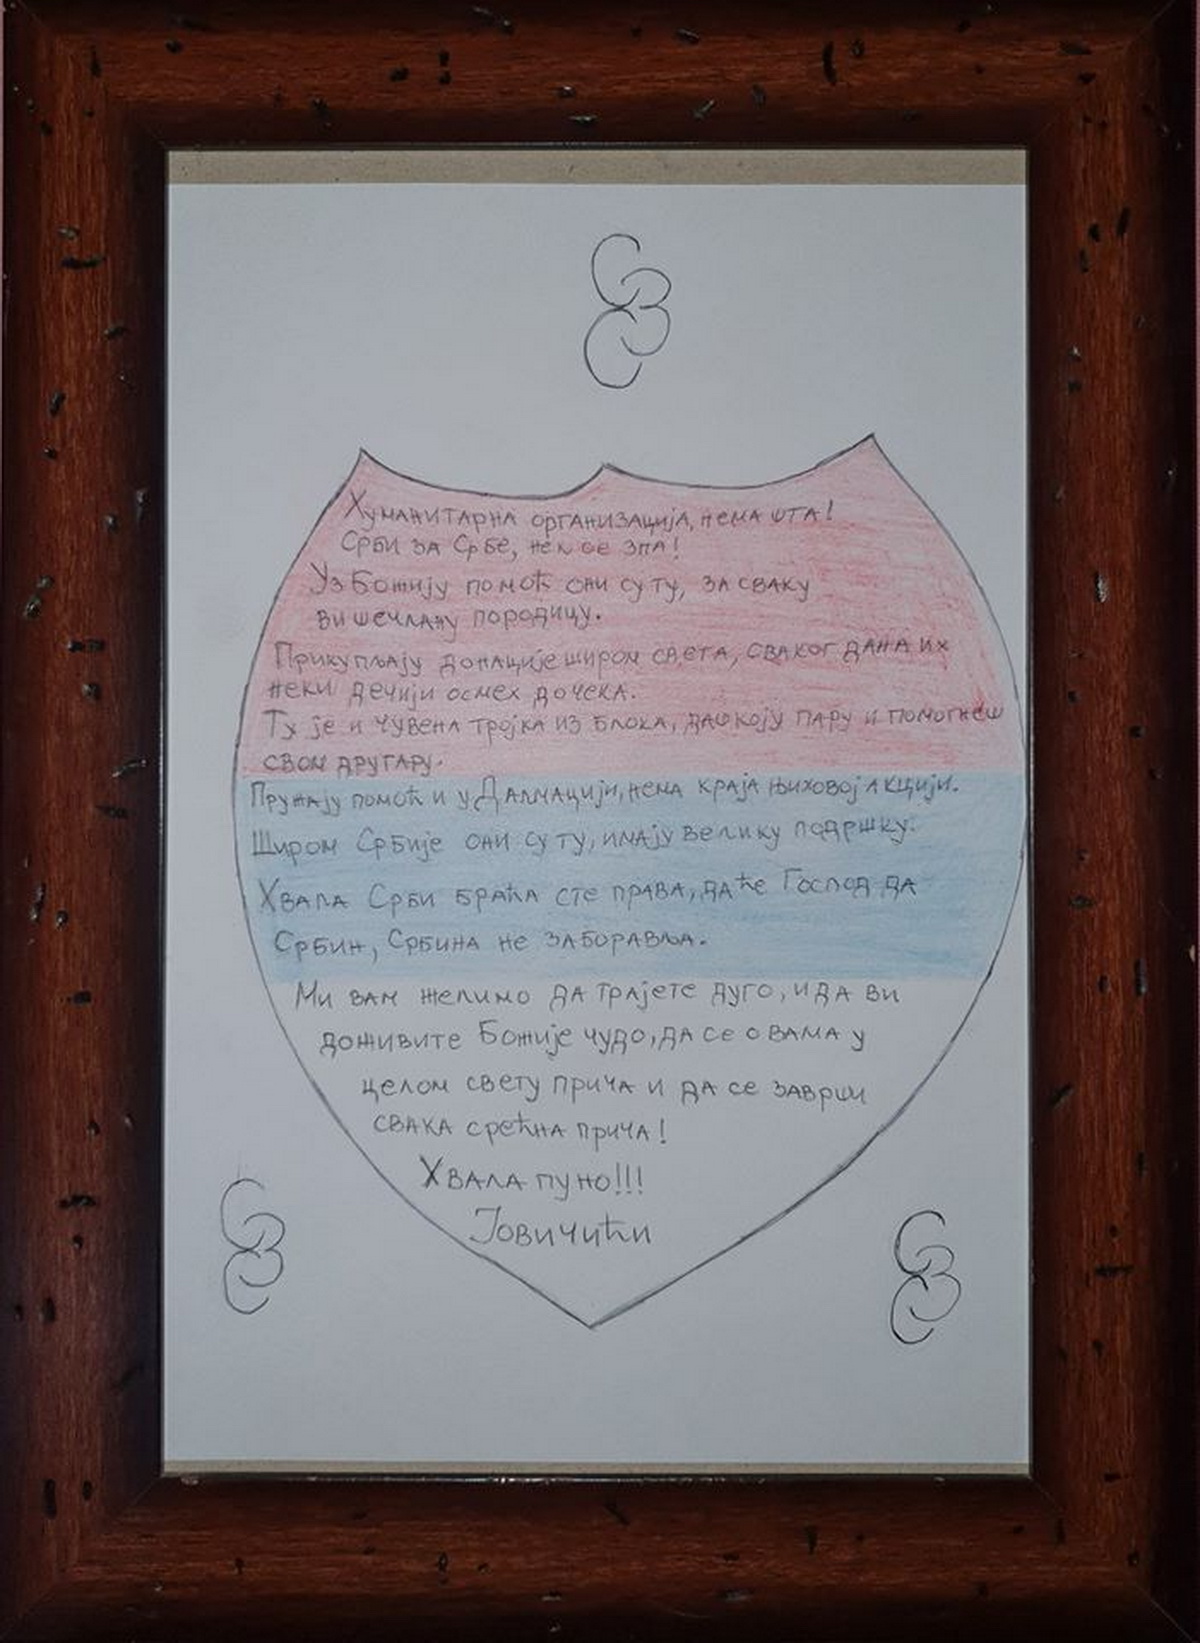 СЗС
Хуманитарна организација, нема шта!
Срби за Србе, нек се зна!
Уз Божију помоћ они су ту, за сваку
вишечлану породицу.
Прикупљају донације широм света, сваког дана их
неки дечији осмех дочека.
Ту је и чувена тројка из блока, даш коју пару и помогнеш
свом другару.
Пружају помоћ и у Далмацији, нема краја њиховој акцији.
Широм Србије они су ту, имају велику подршку.
Хвала Срби браћа сте права, да ће Господ да
Србин, Србина не заборавља.
Ми вам желимо да трајете дуго, и да ви
доживите Божије чудо, да се о вама у
целом свету прича и да се заврши
свака срећна прича!
Хвала пуно!!!
Јовичићи
СЗС
СЗС